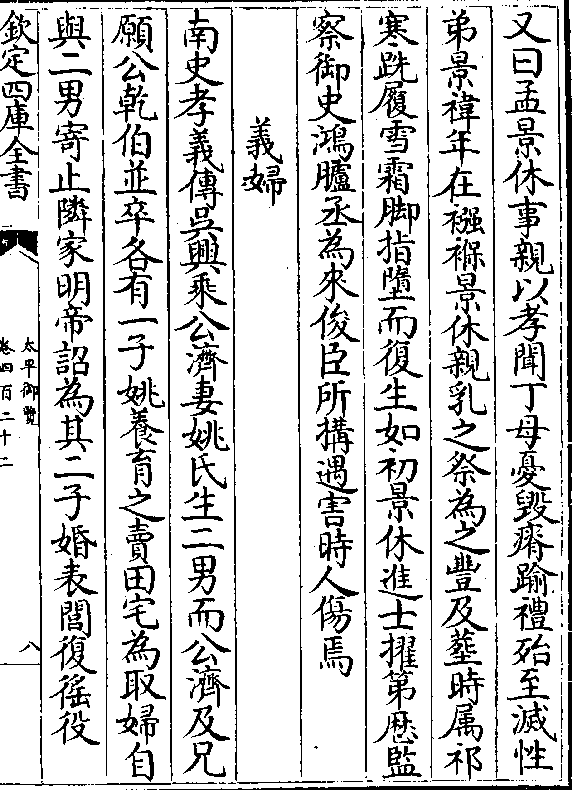 又曰孟景休事親以孝聞丁母憂毀瘠踰禮殆至滅性
弟景禕年在襁褓景休親乳之祭為之豐及塟時属祁
寒跣履雪霜脚指墮而復生如初景休進士擢第歴監
察御史鴻臚丞為來俊臣所搆遇害時人傷焉
義婦
南史孝義傳吳興乘公濟妻姚氏生二男而公濟及兄
願公乾伯並卒各有一子姚養育之賣田宅為取婦自
與二男寄止隣家明帝詔為其二子婚表閭復徭役
欽定四庫全書
太平御覽
卷四百二十二
八